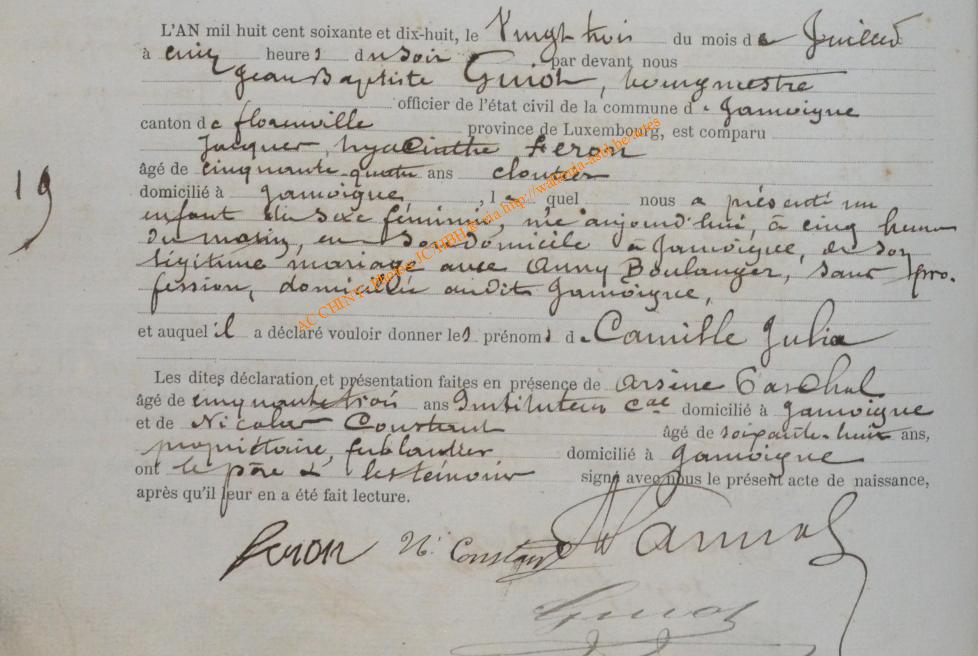 L'AN mil huit cent soixante et dix-huit, le Vingt trois du mois de Juillet
à cinq heures du soir par devant nous
Jean Baptiste Guiot, bourgmestre
officier de l'état civil de la commune de Jamoigne
canton de florenville province de Luxembourg, est comparu
Jacques, hyacinthe Feron
19
âgé de cinquante-quatre ans cloutier
domicilié à Jamoigne, lequel nous a présenté un
enfant du sexe féminin, née aujourd'hui, à cinq heures
du matin, en son domicile à Jamoigne, de son
légitime mariage avec Anny Boulanger, sans pro-
fession, domiciliée audit Jamoigne,
et auquel il a déclaré vouloir donner les prénoms de Camille Julia
Les dites déclaration et présentation faites en présence de Arsène
âgé de cinquante trois ans Instituteur cal domicilié à Jamoigne
et de Nicolas Constant âgé de soixante-huit ans,
propriétaire, domicilié à Jamoigne
ont le père & les témoins signé avec nous le présent acte de naissance,
après qu'il leur en a été fait lecture.
feron N. Constant
Guiot